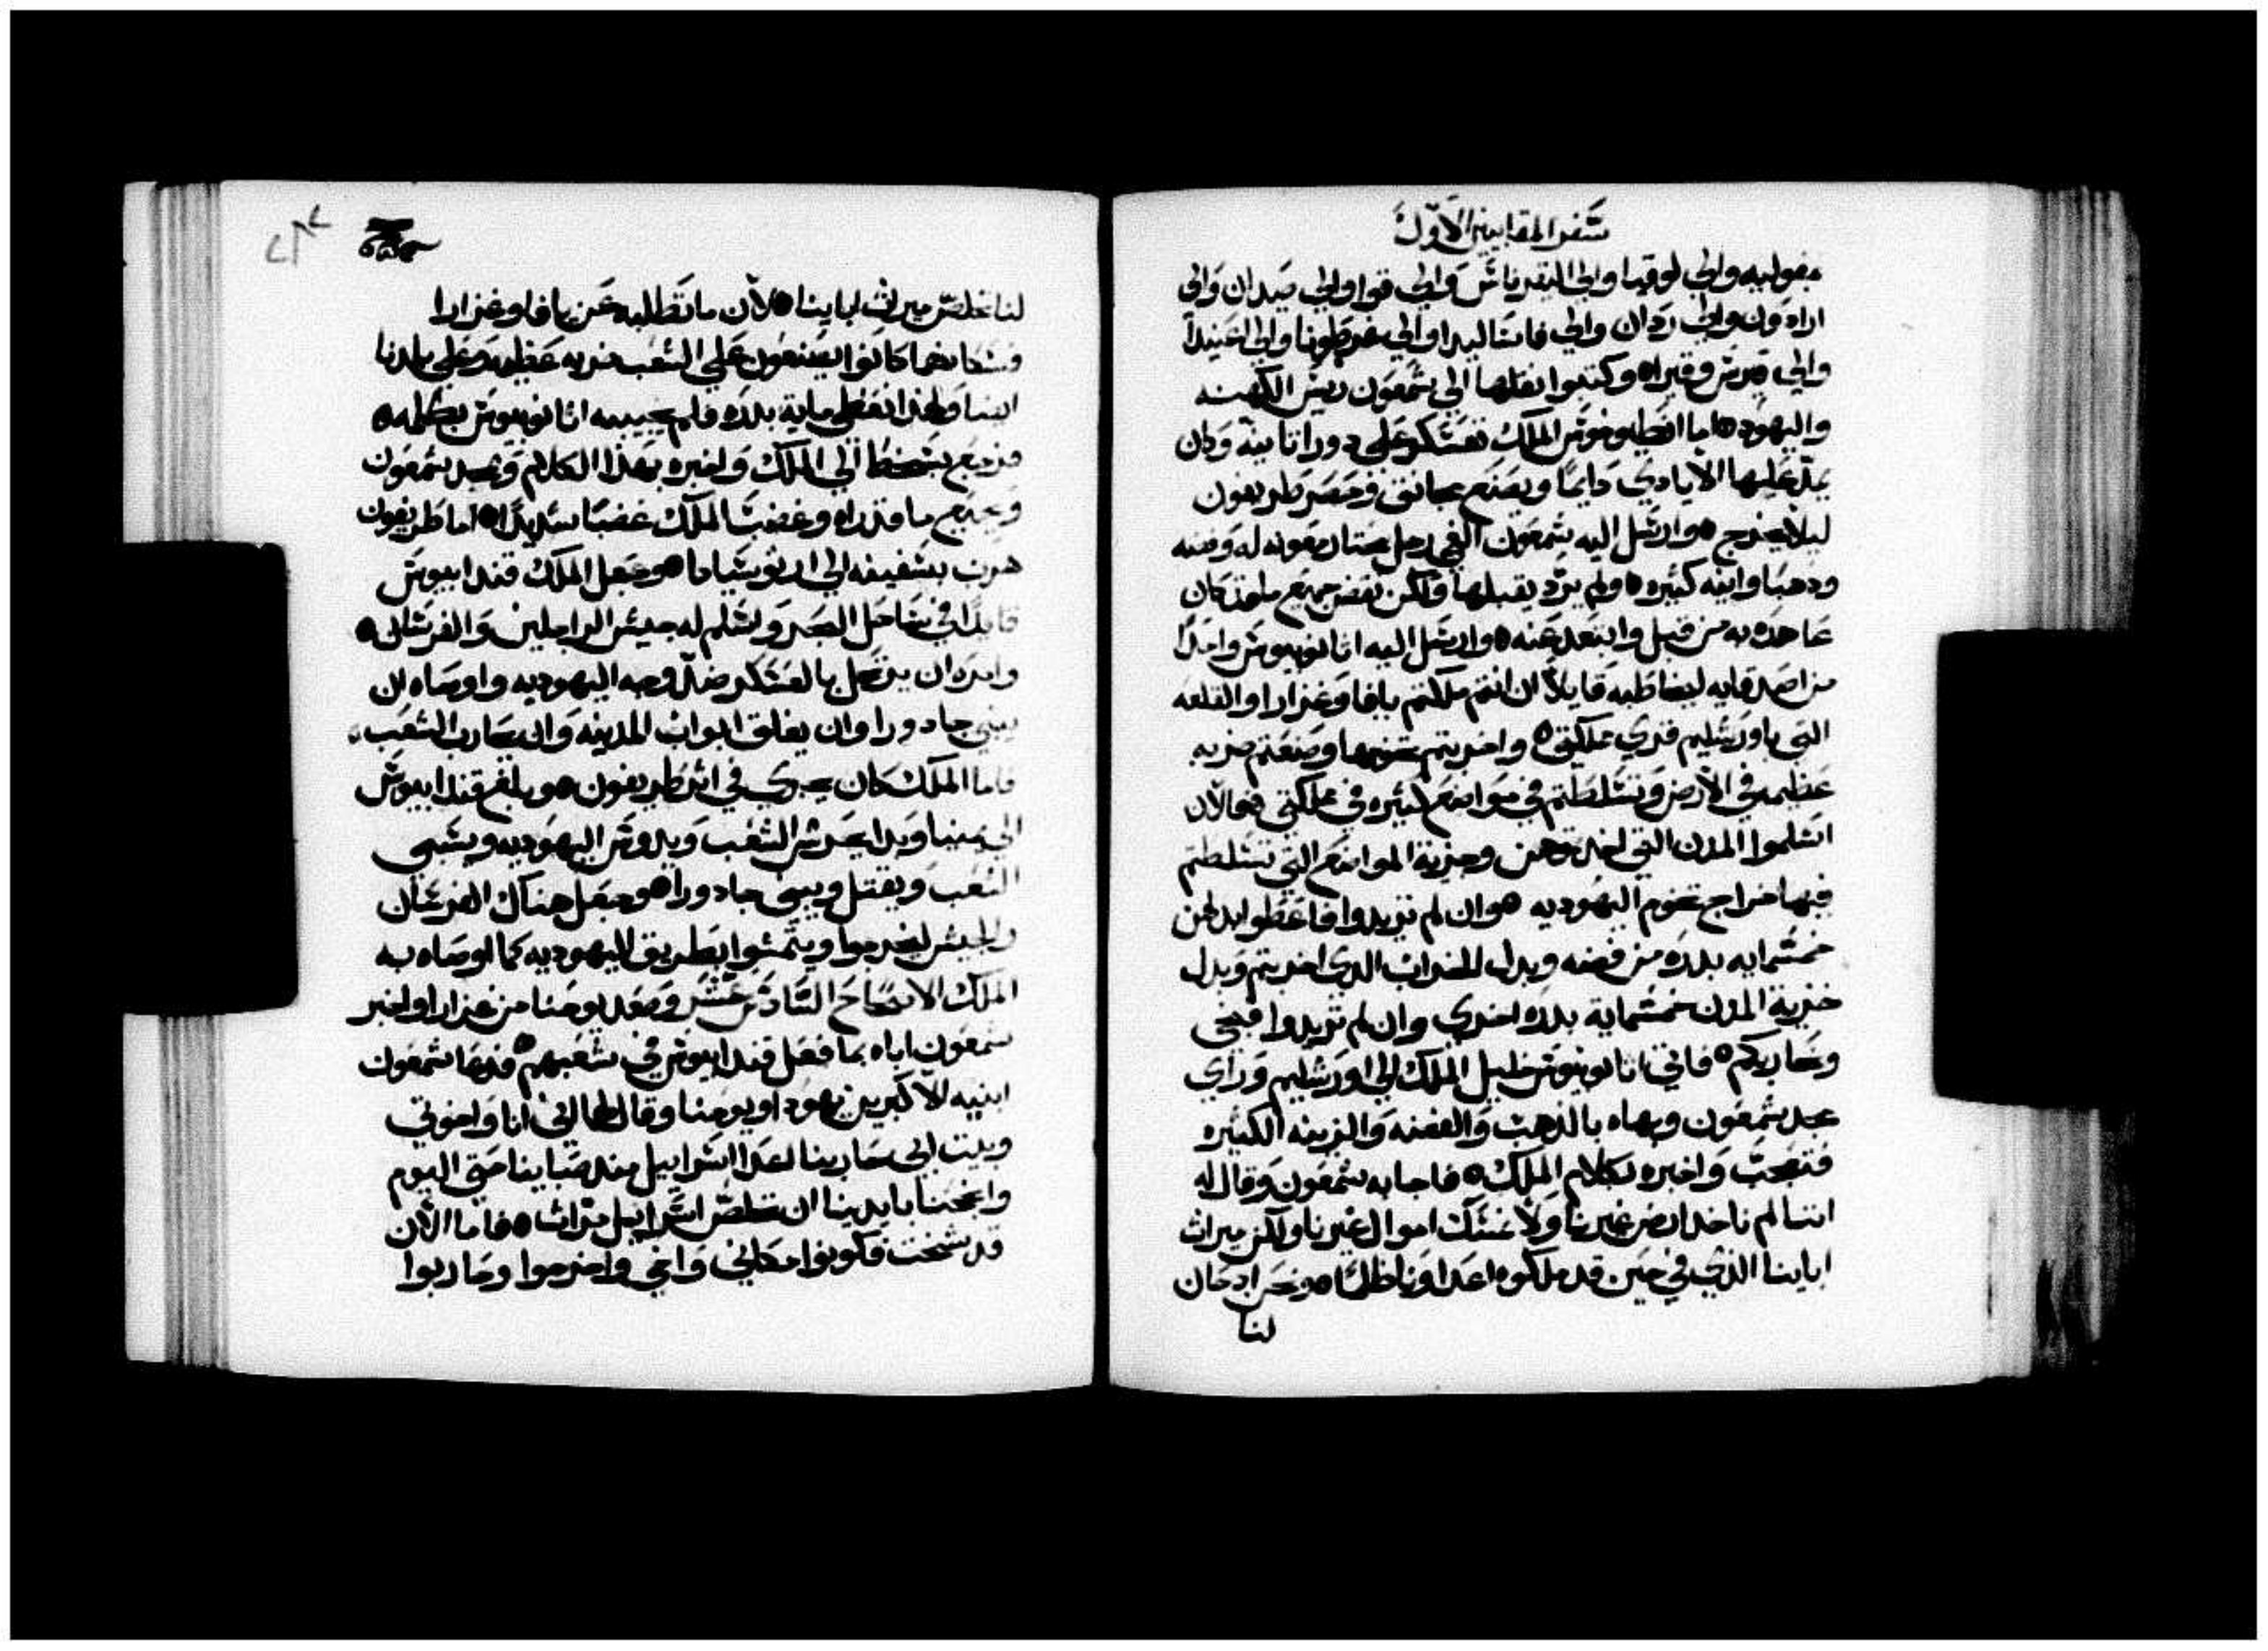 سفر المقابيين الاول
مفوليه والي لوقيا والي اليقرناس والي قوا والي صيدان والي
ارادون والي ردان والي فاسا ليدا والي غرطونا والي اغنيدا
والي قبرس وقيراه وكتبوا نقلها الي شمعون ريس الكهنه
واليهوده اما انطيوخوس الملك فعسكر علي دورا ثانية وكان
يمد عليها الايادي دايما ويصنع مجانق وحصر طريفون
ليلا يخرج ه وارسل اليه شمعون الفي رجل مختار معونه له وفضه
ودهبا وانيه كثيره ه ولم يرد يقبلها ولكن نقض جميع ما قد كان
عاهده به من قبل وابتعد عنه ه وارسل اليه اثانوبيوس واحدا
من اصدقايه ليخاطبه قايلا ان انتم ملكتم يافا وغزارا والقلعه
التي باورشليم قري مملكتي ه واخربتم تخومها وصنعتم ضربه
عظيمه في الارض وتسلطتم في مواضع كثيره في مملكتي ه فالان
اسلموا المدن التي اخدتوهن وجزية المواضع التي تسلطتم
فيها خارج تخوم اليهوديه ه وان لم تريدوا فاعطوا بدلهن
خمسمايه بدره من فضه وبدل الخراب الدي اخربتم وبدل
جزية المدن خمسماية بدره اخري وان لم تريدوا فنجي
ونحاربكم ه فاتي اثانوبيوس خليل الملك الي اورشليم وراي
مجد شمعون وبهاه بالذهب والفضه والزينه الكثيره
فتعجب واخبره بكلام الملك ه فاجابه شمعون وقال له
اننا لم ناخد ارض غيرنا ولا نمسك اموال غيرنا ولكن ميراث
اباينا الذي في حين قد ملكوه اعداونا ظلما ه ونحن اد كان
لنا
لنا نخلص ميراث اباينا ه لان ما تطلبه عن يافا وغزارا
فسكانهما كانوا يصنعون علي الشعب ضربه عظيمه وعلي بلدنا
ايضا ولهذا نعطي ماية بدره فلم يجيبه اثانوبيوس بكلمه ه
فرجع بسخط الي الملك واخبره بهذا الكلام وبمجد شمعون
وبجميع ما قد راه وغضب الملك غضبا شديدا ه اما طريفون
هرب بسفينه الي ارثوسيادا ه وجعل الملك قندابيوس
قايدا في ساحل البحر واسلم له جيش الراجلين والفرسان ه
وامره ان يرتحل بالعسكر ضد وجه اليهوديه واوصاه ان
يبني جادورا وان يغلق ابواب المدينه وان يحارب الشعب
فاما الملك كان يجري في اثر طريفون ه وبلغ قندابيوس
الي يمنيا وبدا يحرش الشعب ويدوس اليهوديه ويسبي
الشعب ويقتل ويبني جادورا ه وجعل هناك الفرسان
والجيش ليخرجوا ويتمشوا بطريق اليهوديه كما اوصاه به
الملك الاصحاح السادس عشر وصعد يوحنا من غزارا واخبر
شمعون اباه بما فعل قندابيوس في شعبهم ه فدعا شمعون
ابنيه الاكبرين يهودا ويوحنا وقال لهما اني انا واخوتي
وبيت ابي حاربنا اعدا اسراييل مند صبايينا حتي اليوم
وانجحنا بايدينا ان نخلص اسراييل مرات ه فاما الان
قد شخت فكونوا مكاني واخي واخرجوا وحاربوا